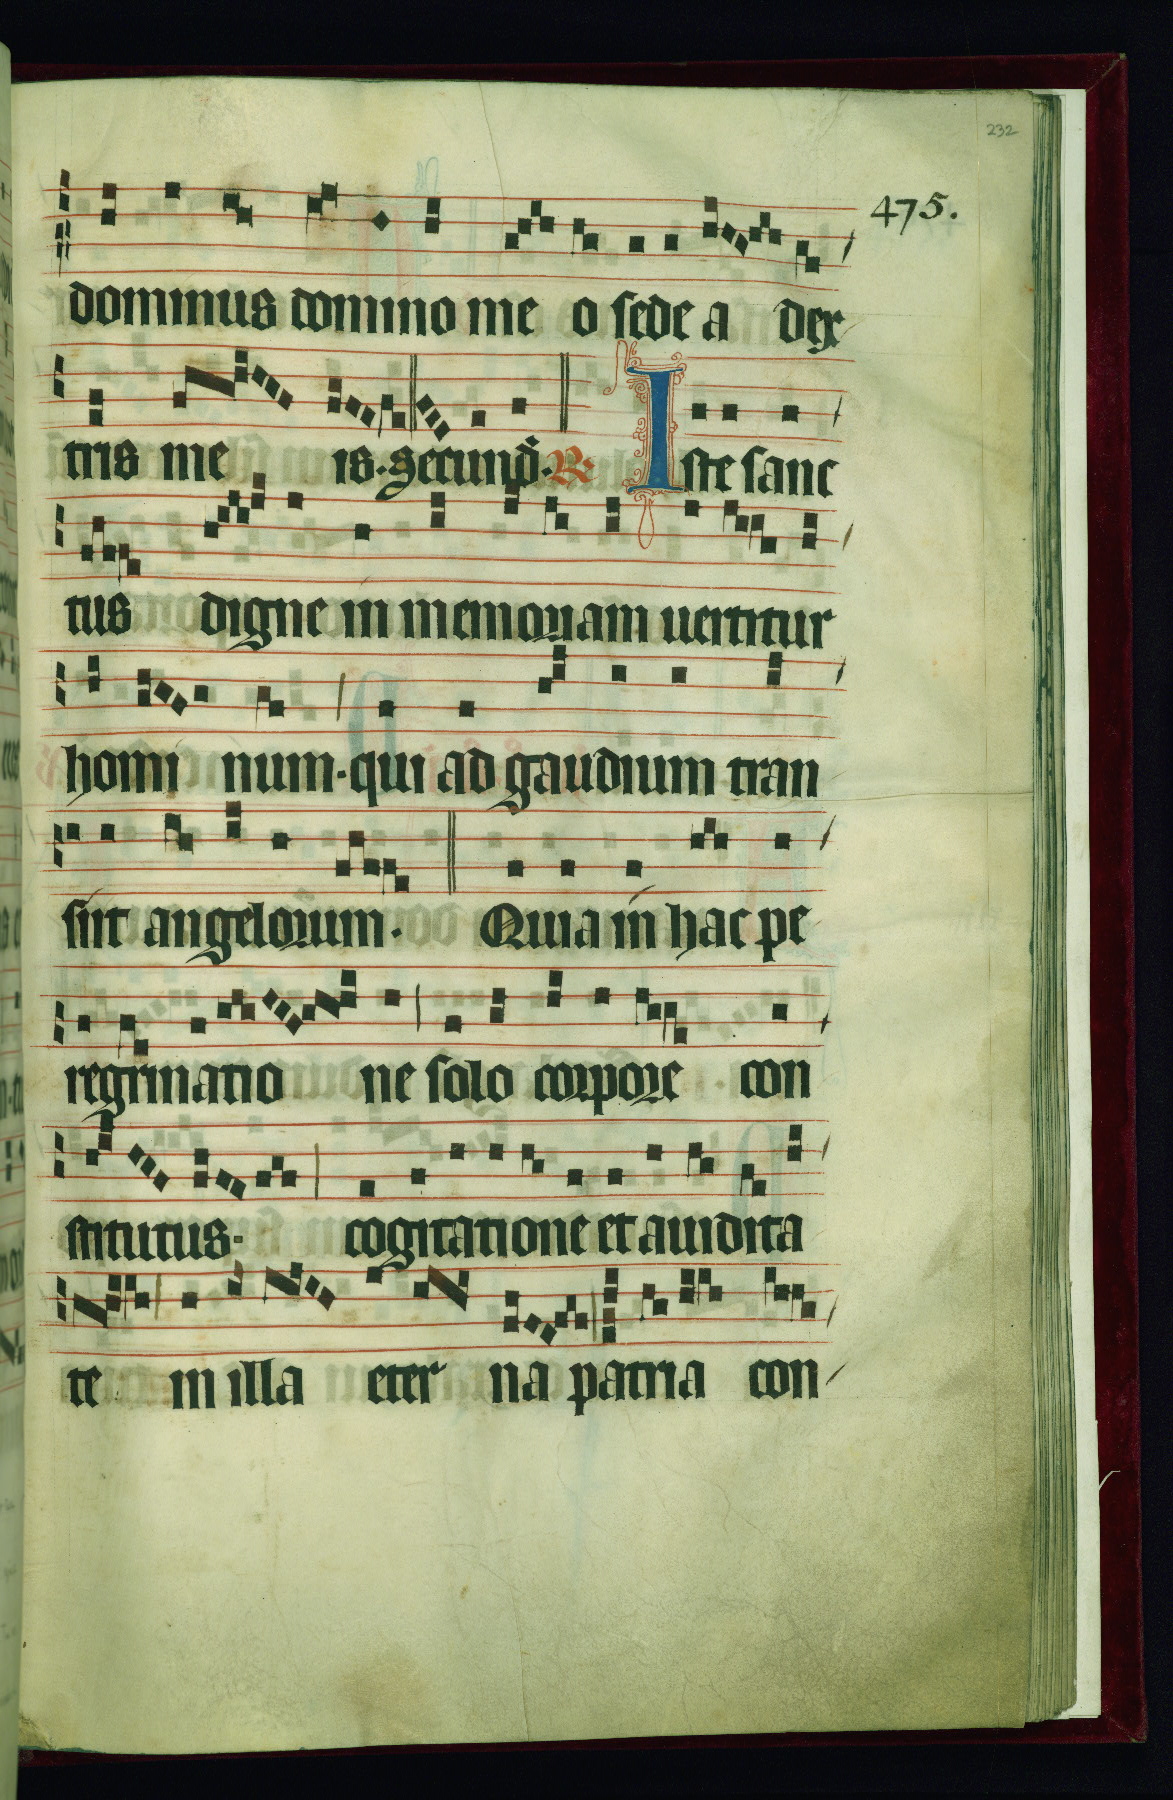 232
475.
dominus domino me o sede a dex
tris me is. Secund. R Iste sanc
tus digne in memoriam uertitur
homi num. qui ad gaudium tran
siit angelorum. Quia in hac pe
regrinatio ne solo corpore con
stitutus. cogitatione et auidita
te in illa eter na patria con